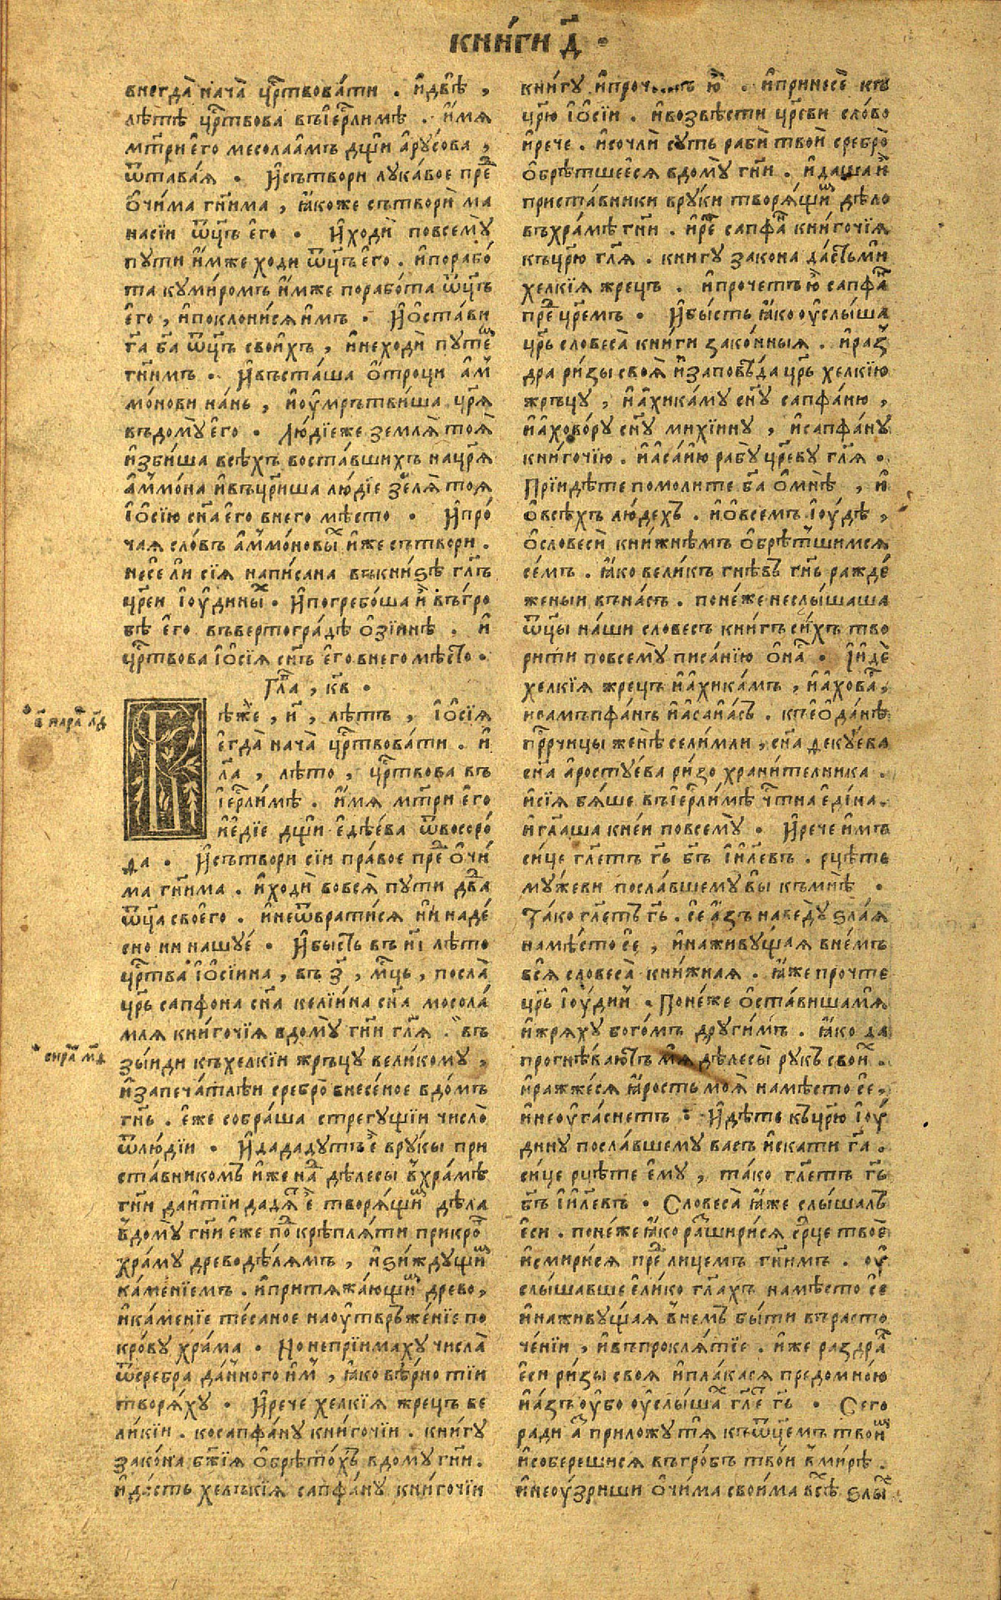 кни́ги д҃ .
внегда̀ нача̀ цр҃твова́ти . и҆две̑ ,
лѣ́тѣ цр҃твова въі҆ер҃лимѣ . и҆́мѧ
мт҃ри е҆го месолаа́мъ дщ҃и а҆ру́сова ,
ѿтава́ѧ . И҆сътвори лука́вое пре҃
ѻ҆чи́ма гн҃има , ꙗ҆́коже сътвори̏ ма
насі́и ѿц҃ъ е҆го̀ . И҆ходѝ повсемꙋ̀
пути и҆́мже ходи ѿц҃ъ е҆го̀ . и҆порабо́
та куми́ромъ и҆́мже порабо́та ѿц҃ъ
е҆го̀ , и҆поклони́сѧ и҆̀мъ . И҆ѡ҆ста́ви
га҃ ба҃ ѿц҃ъ свои́хъ , и҆неходѝ пꙋте҃
гн҃имъ . И҆въста́ша ѻ҆́троци а҆м
мо́нови на́нь , и҆оу҆мрътви́ша цр҃ѧ
въдомꙋ̀ е҆го̀ . Лю́дїеже землѧ̀ тоѧ̀
и҆зби́ша всѣ́хъ воста́вшихъ нацр҃ѧ
а҆ммо́на и҆въцр҃и́ша лю́дїе зе́лѧ тоѧ
і҆ѡ҆сі́ю сн҃а е҆го̀ внего̀ мѣ́сто . И҆про́
чаѧ сло́въ а҆ммо́новы҃ и҆́же сътвори .
несе́ ли сїѧ̀ написана въкни́зѣ гл҃ъ
цр҃еи і҆оу҆дины҃ . И҆погребо́ша и҆̀ въгро
бѣ е҆го̀ въвертогра́дѣ ѻ҆зі́инѣ . и҆
цр҃твова і҆ѡ҆сі́ѧ сн҃ъ е҆го̀ внего̀ мѣ́сто .
Гл҃а , кв҃ .
в҃ пара҃ лд҃
Бѣ́же , и҃ , лѣтъ , і҆ѡ҆сі́ѧ
е҆гда̀ нача̀ цр҃твова́ти . и҆
ла҃ , лѣ́то , цр҃твова въ
і҆ер҃ли́мѣ . и҆́мѧ мт҃ри е҆го̀
и҆е҆ді́е дщ҃и е҆дѣ́ева ѿвосоро́
да . И҆сътвори сїи пра́вое пре҃ ѻ҆чи́
ма гн҃има . и҆ходѝ вовсѧ̀ пути дв҃да
ѿц҃а своего̀ . и҆неѿврати́сѧ нинаде́
сно ни нашꙋе́ . И҆бы́сть въ и҃і лѣ́то
цр҃тва і҆ѡ҆сі́ина , въ з҃ , мц҃ь , посла̀
цр҃ь сапфона сн҃а келі́ина сн҃а мосола́
млѧ кни́гочїѧ вдомꙋ̀ гн҃и гл҃ѧ . въ
сира҃ мѳ҃
зы́иди къхелкі́и жръцꙋ̀ вели́комꙋ ,
и҆запеча́тлѣи сребро̀ внесе́ное вдо́мъ
гн҃ь . е҆́же собра́ша стрегꙋщїи число̀
ѿлю́дїи . И҆дададꙋтъ е҆̀ врꙋкы̀ при
ста́вникомъ и҆́же на҃ дѣлесы̀ в҆хра́мѣ
гн҃и да и҆ті́и дадѧ҃ е҆̀ творѧ́щи҃ дѣ́ла
в҆домꙋ̀ гн҃и е҆́же по҃кре́плѧти прикро҃
хра́мꙋ древодѣ́лѧмъ , и҆зи́ждꙋщи҃
ка́менїемъ . и҆притѧжа́ющи҃ древо ,
и҆ка́менїе те́саное наоу҆твръже́нїе по
кро́вꙋ хра́ма . Но непрїима́хꙋ числа̀
ѿсребра да́нного и҆м҃ , ꙗ҆́ко вѣ́рно тїи
творѧ́хꙋ . И҆рече хелкі́ѧ жрецъ ве
ли́кїи . косапфа́нꙋ кни́гочїи . кни́гꙋ
зако́на бж҃їѧ ѻ҆брѣто́хъ вдомꙋ̀ гн҃и .
и҆да́сть хелъкі́ѧ сапфа́нꙋ кни́гочїи
кни́гꙋ . и҆принесѐ къ
цр҃ю і҆ѡ҆сі́и . и҆возвѣсти цр҃еви сло́во
и҆рече . и҆сочлѝ сꙋть рабѝ твоѝ сребро̀
ѻ҆брѣ́тшеесѧ вдомꙋ̀ гн҃и . и҆да́ша и҆̀
приста́вники врꙋки творѧ́щи҃ дѣ́ло
въхра́мѣ гн҃и . и҆ре҃ сапфа҃ кни́гочїѧ
къцр҃ю гл҃ѧ . кни́гꙋ зако́на да́стьми
хелкі́ѧ жрецъ . и҆прочетъ ю҆̀ сапфа҃
пре҃ цр҃емъ . И҆бы́сть ꙗ҆́ко оу҆слы́ша
цр҃ь словеса̀ кни́ги зако́нныѧ . и҆раз
дра ри́зы своѧ̀ и҆заповѣ́да цр҃ь хелкі́ю
жръцꙋ , и҆а҆хика́мꙋ сн҃ꙋ сапфа́ню ,
и҆а҆хово́рꙋ сн҃ꙋ михі́инꙋ , и҆сапфа́нꙋ
кни́гочїю . и҆а҆са́ию рабꙋ̀ цр҃евꙋ гл҃ѧ .
Прїидѣ́те помоли́те ба҃ ѻ҆мнѣ̀ , и҆
ѻ҆всѣ́хъ лю́дехъ . и҆ѻ҆всемъ і҆оу́дѣ ,
ѻ҆словесѝ кни́жнѣмъ ѻ҆брѣ́тшимсѧ
се́мъ . ꙗ҆́ко вели́къ гнѣ́въ гн҃ь ражде́
женыи въна́съ . поне́же неслы́шаша
ѿц҃ы на́ши слове́съ кни́гъ си́хъ тво
ри́ти повсемꙋ̀ писа́нїю ѻ҆на҃ . І҆и́де
хелкі́ѧ жрецъ и҆а҆хика́мъ , и҆а҆хова҃ ,
исамъпфа́нъ и҆а҆са́иасъ . къео҆лда́нѣ
пр҃рчицы женѣ̀ сели́мли , сн҃а декꙋева
сн҃а а҆ростꙋе́ва ри́зо храни́телника .
и҆сїѧ̀ бѧ́ше въі҆ер҃ли́мѣ чт҃на е҆ді́на .
и҆гл҃аша кне́и повсемꙋ̀ . И҆рече и҆мъ
си́це гл҃етъ гь҃ бг҃ъ і҆и҃левъ . рцѣ́те
мꙋ́жеви посла́вшемꙋ вы̀ къмнѣ̀ .
Та́ко гл҃етъ гь҃ . се̏ а҆́зъ наведꙋ̀ зла́ѧ
намѣ́сто се̏ , и҆наживꙋ́щаѧ вне́мъ
всѧ̀ словеса̀ кни́жнаѧ . ꙗ҆́же прочте
цр҃ь і҆оу҆ди҃ . Поне́же ѻ҆ста́вишамѧ
и҆жрѧ́хꙋ бого́мъ дрꙋги́мъ . ꙗ҆́ко да
прогнѣ́ваютъ мѧ̀ дѣлесы̀ рꙋкъ свои҃ .
и҆ражже́сѧ ꙗ҆́рость моѧ̀ намѣ́сто се̏ ,
и҆неоу҆га́снетъ : И҆дѣ́те къцр҃ю і҆оу́
динꙋ посла́вшемꙋ ва́съ и҆ска́ти га҃ .
си́це рцѣ́те е҆мꙋ̀ , та́ко гл҃етъ гь҃
бг҃ъ і҆и҃левъ . Словеса̀ ꙗ҆́же слы́шалъ
е҆си . поне́же ꙗ҆́ко раш҃ири́сѧ ср҃це твоѐ
и҆смири́сѧ пре҃ лице́мъ гн҃имъ . оу҆
слы́шавше е҆ли́ко гл҃ахъ намѣ́сто се̏
и҆наживꙋ́щаѧ в҆не́мъ бы́ти въраспо
че́нїи , и҆въпроклѧ́тїе . и҆́же раздра҃
е҆си ри́зы своѧ̀ и҆пла́касѧ предомно́ю
и҆а҆́зъ оу҆́бо оу҆слы́ша҃ гл҃е гь҃ . Сего̀
ради а҆҃ приложꙋ́ тѧ къѿц҃емъ твои҃
и҆собере́шисѧ въгро́бъ тво́и в҆ми́рѣ .
и҆неоу́зриши ѻ҆чи́ма свои́ма все҃ злы҃